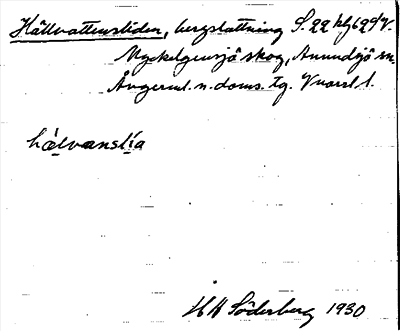 Hällvattensliden, bergsluttning S. 22
Myckelgensjö skog, Anundsjö sn.
Ångerml. n. doms. tg. V norrl l.
hælvanslia
HH Söderberg 1930